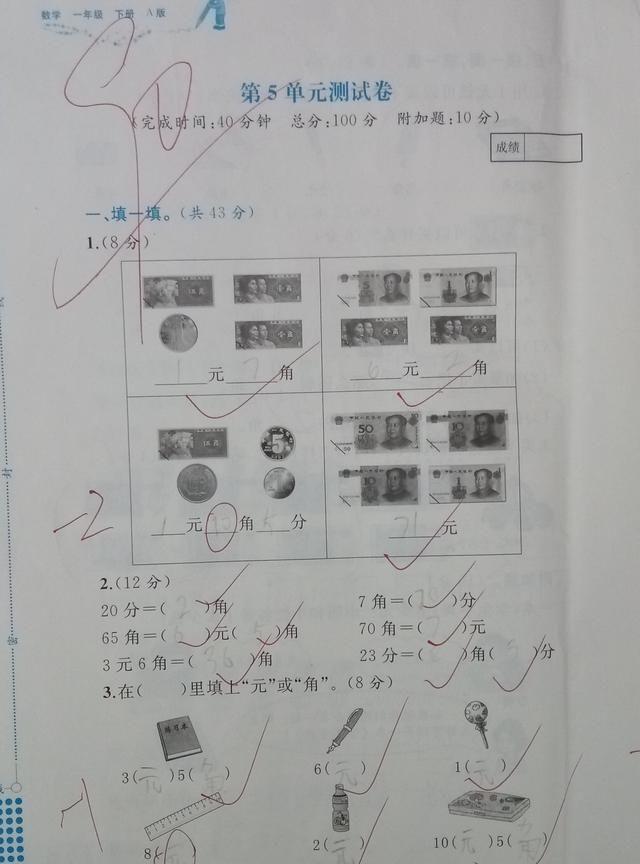 数学 一年级 下册 A版
第5单元测试卷
(完成时间:40分钟 总分:100分 附加题:10分)
成绩
一、填一填。(共43分)
1.(8分)
1元7角 6元2角
-2
1元 角5分 71元
2.(12分)
20分=(2)角 7角=(70)分
65角=(6)元(5)角 70角=(7)元
3元6角=(36)角 23分=(2)角(3)分
3.在( )里填上“元”或“角”。(8分)
练习本
3(元)5(角) 6(元) 1(元)
8(元) 2(元) 10(元)5(角)